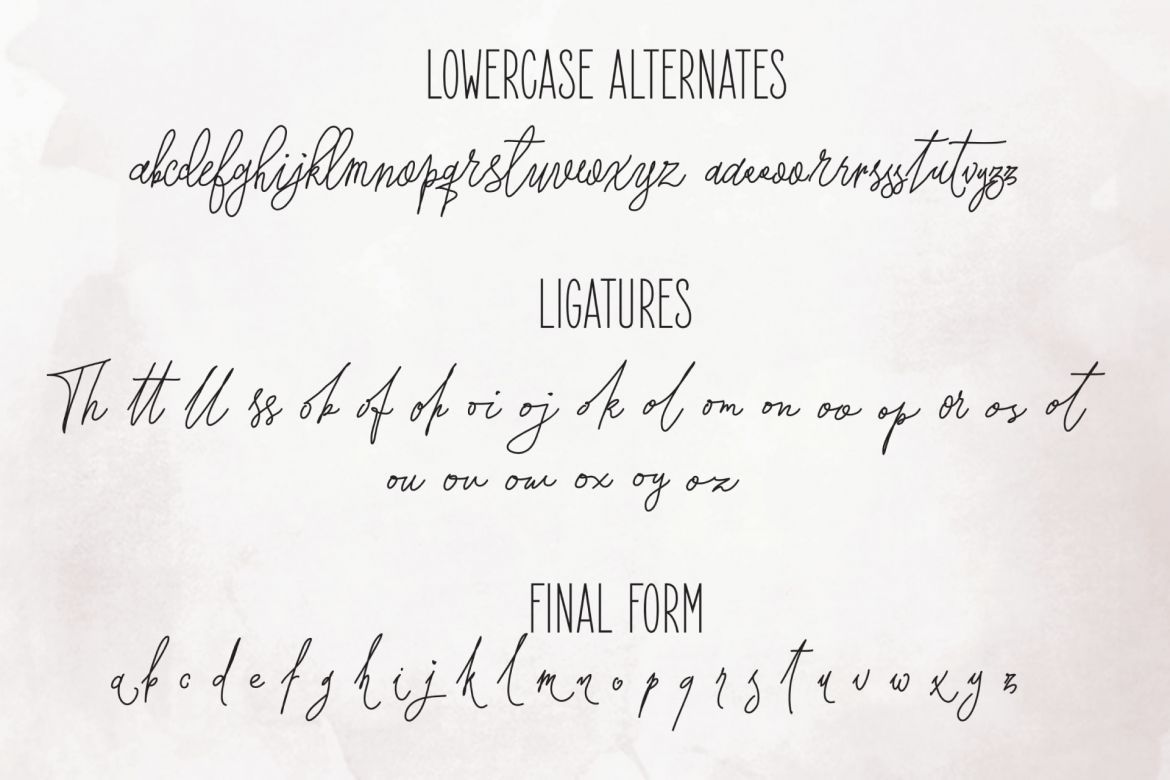 LOWERCASE ALTERNATES
abcdefghijklmnopqrstuvwxyz adaeooorrrssstutvyzz
LIGATURES
Th tt ll ss ob of oh oi oj ok ol om on oo op or os ot
ou ov ow ox oy oz
FINAL FORM
a b c d e f g h i j k l m n o p q r s t u v w x y z